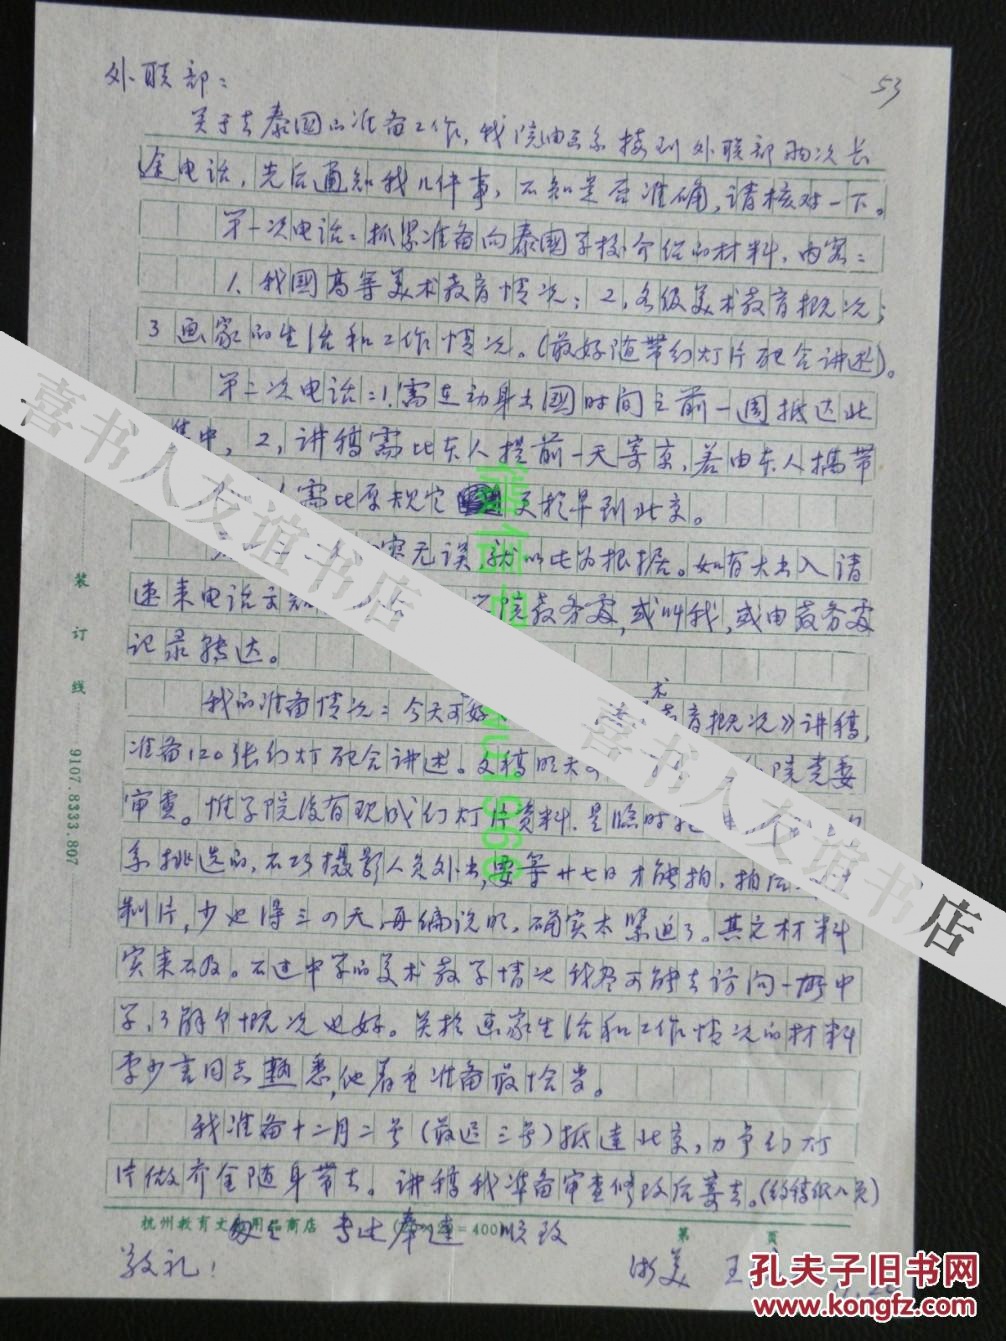 53
外联部：
关于去泰国的准备工作，我院油画系接到外联部两次长
途电话，先后通知我几件事，不知是否准确，请核对一下。
第一次电话：抓紧准备向泰国学校介绍的材料，内容：
1、我國高等美术教育情况；2，各级美术教育概况；
3 画家的生活和工作情况。（最好随带幻灯片配合讲述）。
第二次电话：1.需在动身出國时间之前一周抵达北
集中，2，讲稿需比本人提前一天寄京，若由本人携带
需比原规定 更提早到北京。
无误，就以此为根据。如有大出入请
速来电话 院教务处，或叫我，或由教务处
记录转达。
我的准备情况：今天可 术教育概况》讲稿，
准备120张幻灯配合讲述。文稿明天 院党委
审查。惟学院没有现成幻灯片资料，是临时
系挑选的，不巧摄影人员外出，要等廿七日才能拍，拍
制片，少也得三四天，再编说明，确实太紧迫了。其它材料
实来不及。不过中学的美术教学情况我尽可能去访问一所中
学，了解个概况也好。关于画家生活和工作情况的材料
李少言同志熟悉，他着重准备最恰当。
我准备十二月二号（最迟三号）抵达北京，力争幻灯
片做齐全随身带去。讲稿我准备审查修改后寄去。
专此奉达 顺致
敬礼！
浙美 王
杭州教育文 用品商店 = 400
第 页
装订线
9107.8333.807
喜书人友谊书店
喜书人友谊书店
孔夫子旧书网
www.kongfz.com